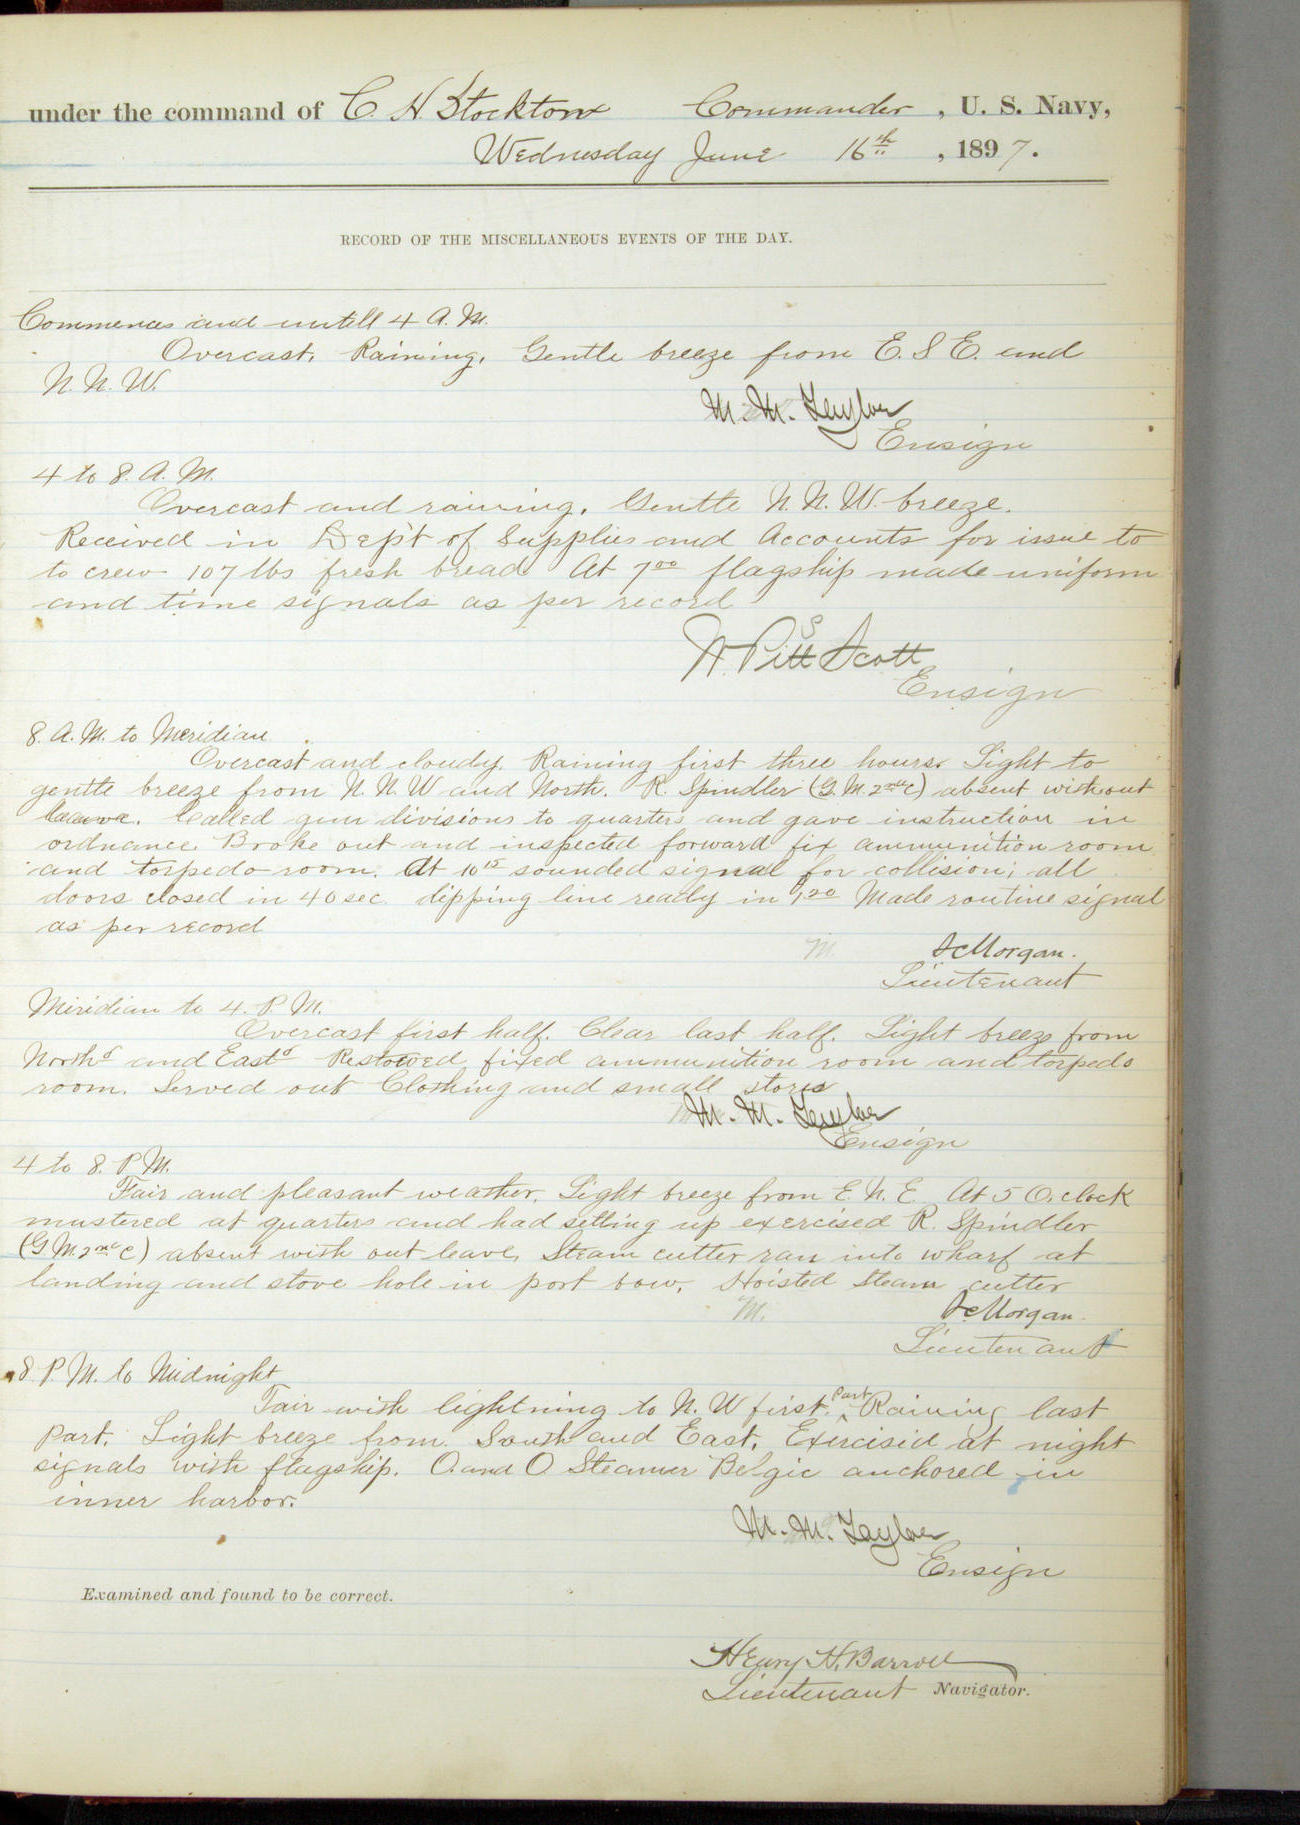 under the command of C. H. Stockton Commander, U. S. Navy,
Wednesday June 16th, 1897.
RECORD OF THE MISCELLANEOUS EVENTS OF THE DAY.
Commences and untill 4 A. M.
Overcast, Raining, Gentle breeze from E. S E. and
N. N. W.
M. M. Taylor
Ensign
4 to 8. A. M.
Overcast and raining. Gentle N. N. W. breeze.
Received in Dep't of Supplies and Accounts for issue to
to crew 107 lbs fresh bread At 7 00 flagship made uniform
and time signals as per record
W. Pitt Scott
Ensign
8. A. M. to Meridian
Overcast and cloudy. Raining first three hours. Light to
gentle breeze from N. N. W and North. R. Spindler (G. M. 2nd C) absent without
leave. Called gun divisions to quarters and gave instruction in
ordnance. Broke out and inspected forward fix ammunition room
and torpedo room. At 10 15 sounded signal for collision; all
doors closed in 40 sec dipping line ready in 1 20 Made routine signal
as per record
M. JcMorgan.
Lieutenant
Miridian to 4. P. M.
Overcast first half. Clear last half. Light breeze from
Northd and Eastd Restowed fixed ammunition room and torpedo
room. Served out Clothing and small stores
M. M. Taylor
Ensign
4 to 8. P. M.
Fair and pleasant weather. Light breeze from E. N. E. At 5 O. clock
mustered at quarters and had setting up exercised R. Spindler
(G. M. 2nd C) absent with out leave, Steam cutter ran into wharf at
landing and stove hole in port bow, Hoisted steam cutter
M. JcMorgan.
Lieutenant
8 P. M. to Midnight
Fair with lightning to N. W first. part Raining last
part. Light breeze from South and East. Exercisid at night
signals with flagship. O. and O Steamer Belgic anchored in
inner harbor.
M. M. Taylor
Ensign
Examined and found to be correct.
Henry H. Barroll
Lieutenant Navigator.